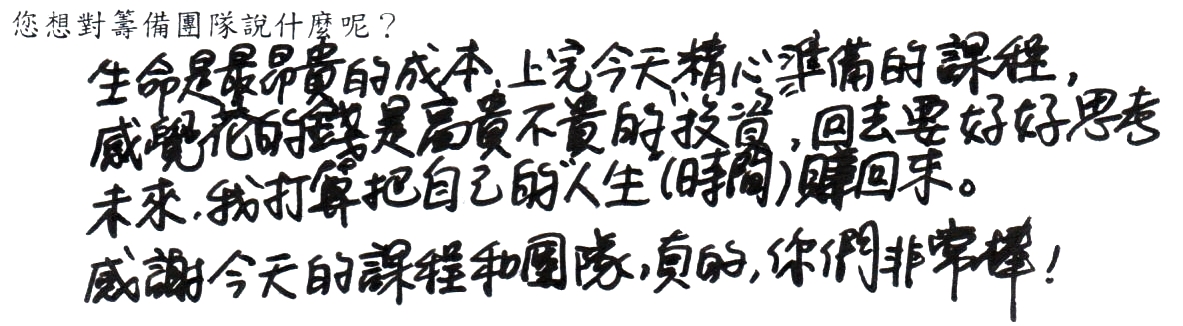 您想對籌備團隊說什麼呢？
生命是最昂貴的成本，上完今天精心準備的課程，
感覺花的錢是高貴不貴的投資，回去要好好思考
未來，我打算把自己的"人生"(時間)贖回來。
感謝今天的課程和團隊，真的，你們非常棒！